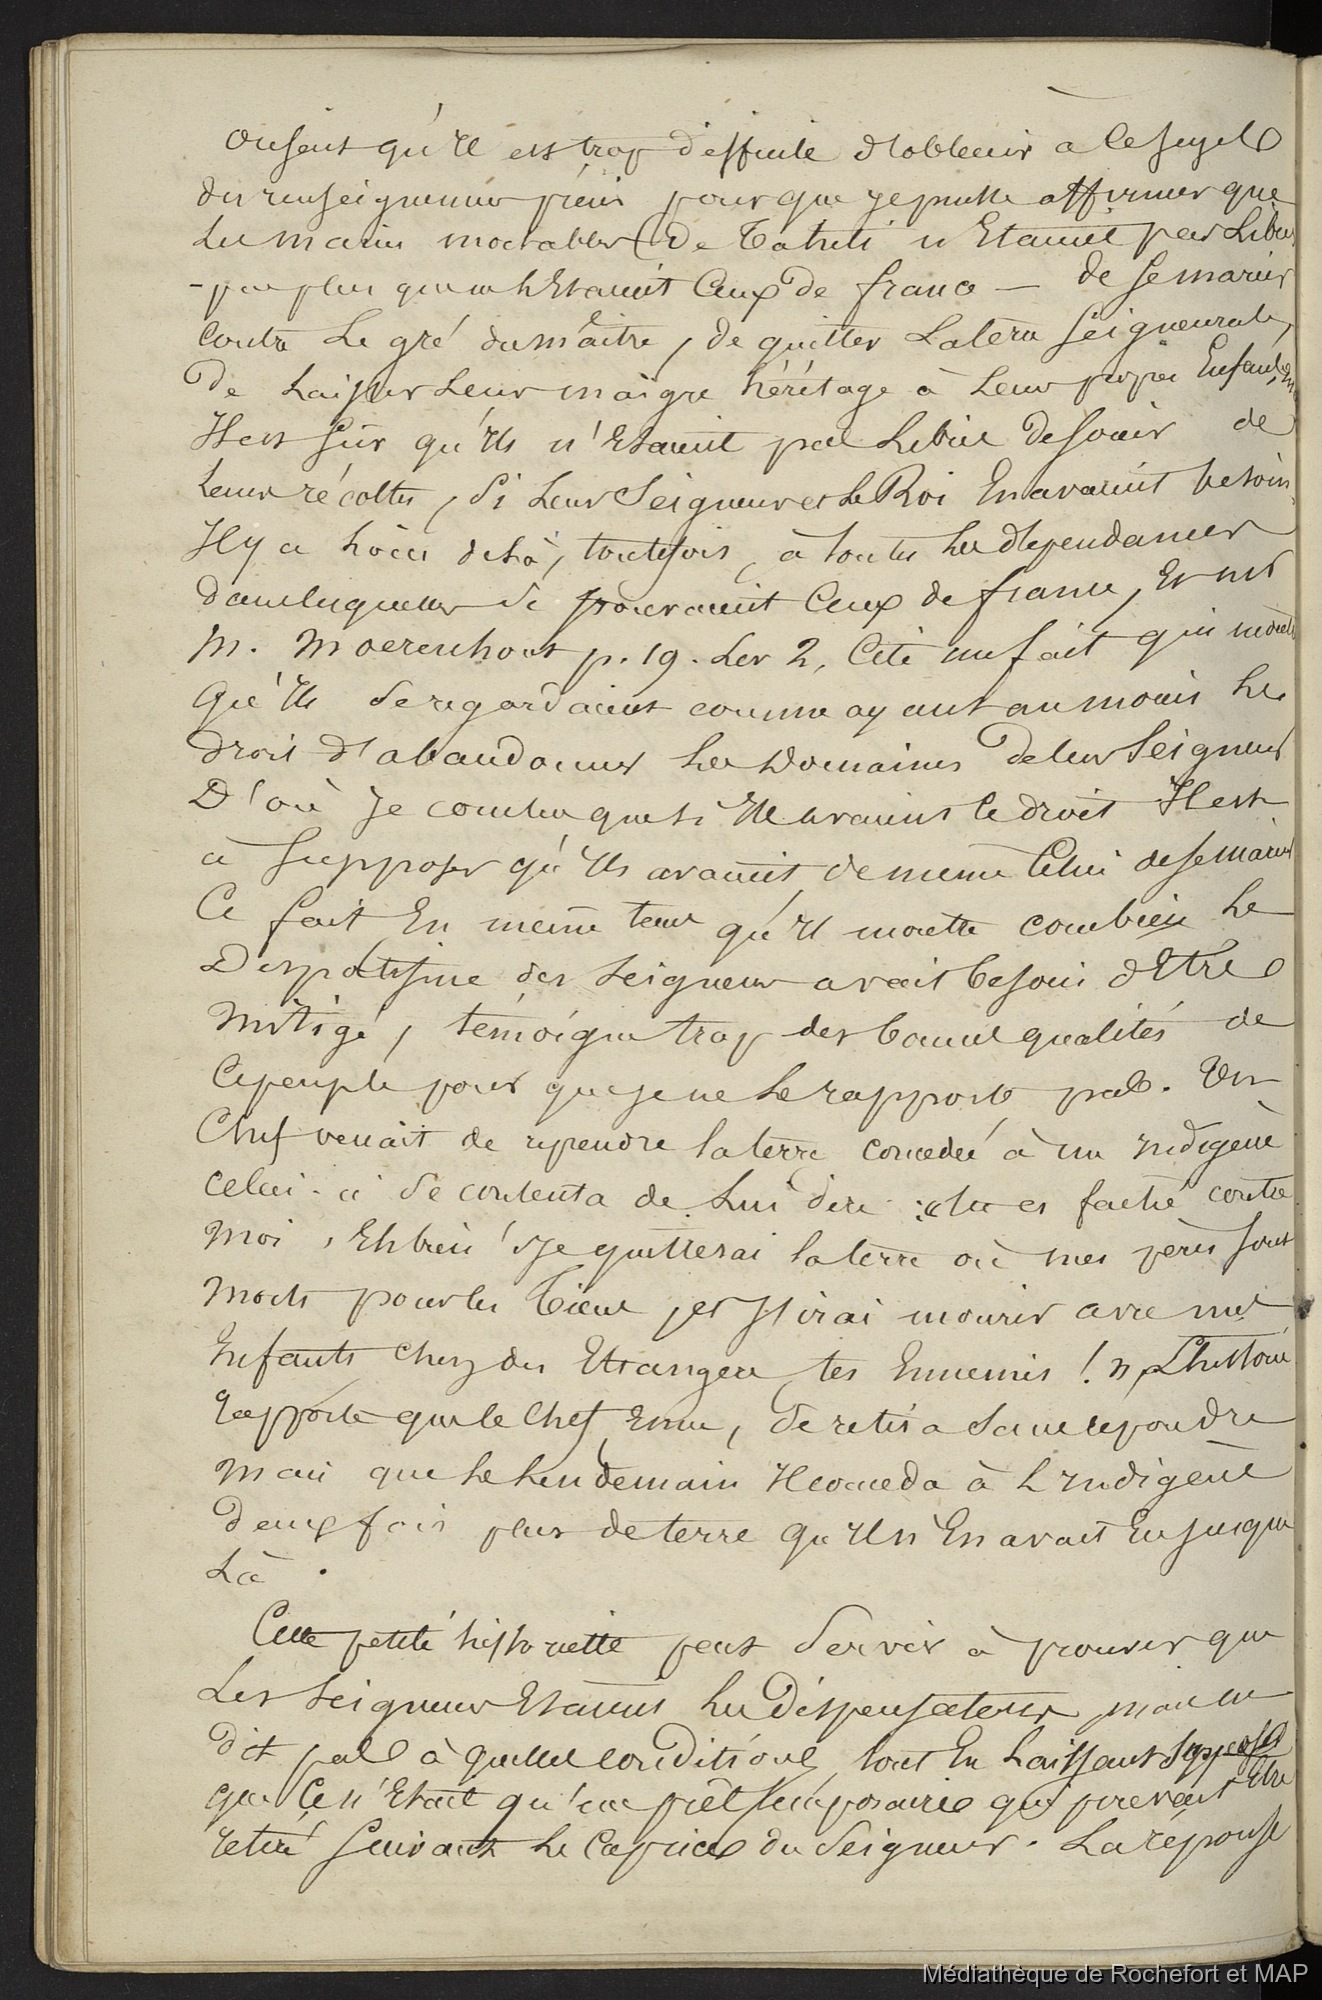 On sent qu'il est trop difficile d'obtenir à ce sujet
des renseignements précis pour que je puisse affirmer que
les mains mortables de Tahiti n'étaient pas libres
- pas plus que ne l'étaient ceux de france - de se marier
contre le gré du maître, de quitter la terre seigneuriale,
de laisser leur maigre héritage à leurs propres Enfants,
Il est sûr qu'ils n'étaient pas libres de jouir de
leurs récoltes, si leur Seigneur et le Roi En avaient besoin.
Il y a loin de là, toutefois, à toutes les dépendances
dans lesquelles se trouvaient ceux de france, Et
M. Moerenhout p. 19. Les 2, Cite un fait qui
qu'ils se regardaient comme ayant au moins le
droit d'abandonner les Domaines de leur Seigneur
D'où je conclus que si Ils avaient ce droit Il est
à supposer qu'ils avaient de même Celui de se marier
Ce fait En même tems qu'il montre combien le
Despotisme des seigneurs avait besoin d'Etre
mitigé, témoigne trop des bonnes qualités de
Ce peuple pour que je ne le rapporte pas. Un
Chef venait de reprendre la terre concedée à un indigène
celui-ci se contenta de lui dire : « tu es faché contre
moi, Eh bien ! Je quitterai la terre où mes pères sont
morts pour les tiens, et J'irai mourir avec mes
Enfants chez des Etrangers, tes Ennemis ! » L'histoire
rapporte que le Chef, Emu, se retira sans repondre
mais que le lendemain Il conceda à l'indigène
deux fois plus de terre qu'il n'En avait Eu jusque
là.
Cette petite historiette peut servir à prouver que
les seigneurs Etaient les dispensateurs, mais ne
dit pas à quelles conditions, tout En laissant supposer
que Ce n'Etait qu'un prêt temporaire qui pouvait Etre
retiré suivant le Caprice du Seigneur. La réponse
Médiathèque de Rochefort et MAP